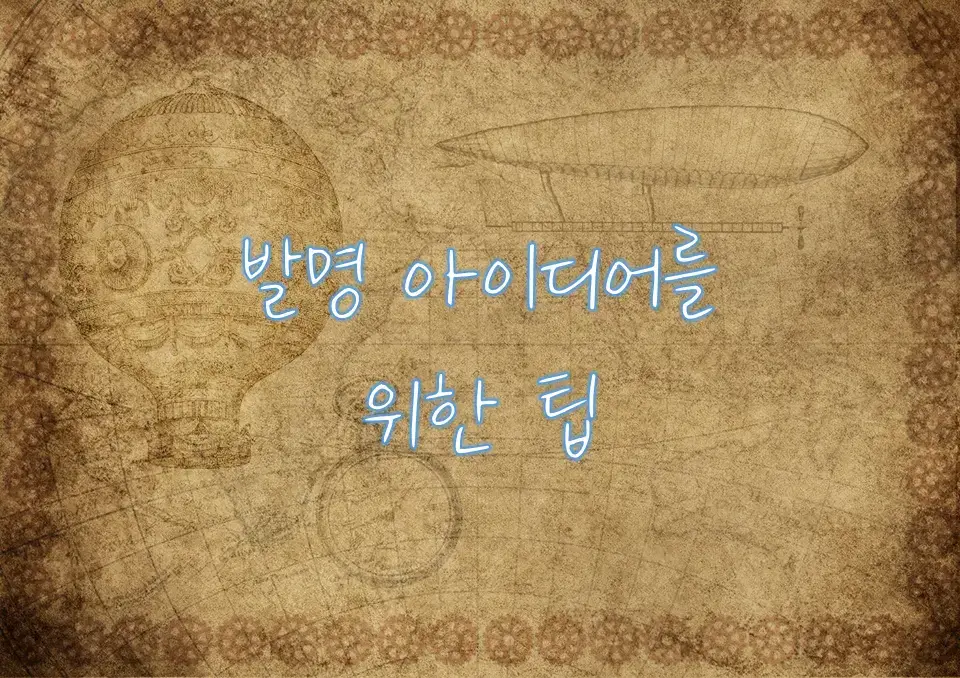 발명 아이디어를
위한 팁